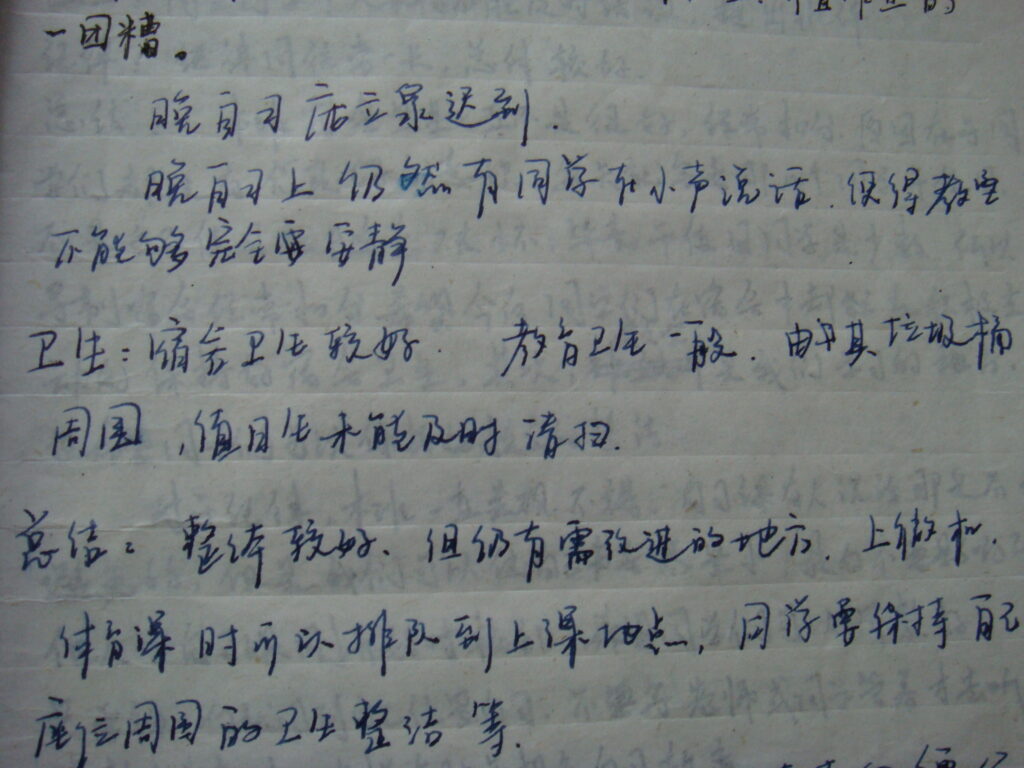 一团糟。
晚自习 立泉迟到.
晚自习上仍然有同学在小声说话.使得教室
不能够完全要安静
卫生:宿舍卫生较好. 教育卫生一般.由其垃圾桶
周围,值日生未能及时清扫.
总结: 整体较好、但仍有需改进的地方.上微机.
体育课时可以排队到上课地点,同学要保持自己
座位周围的卫生整洁等.